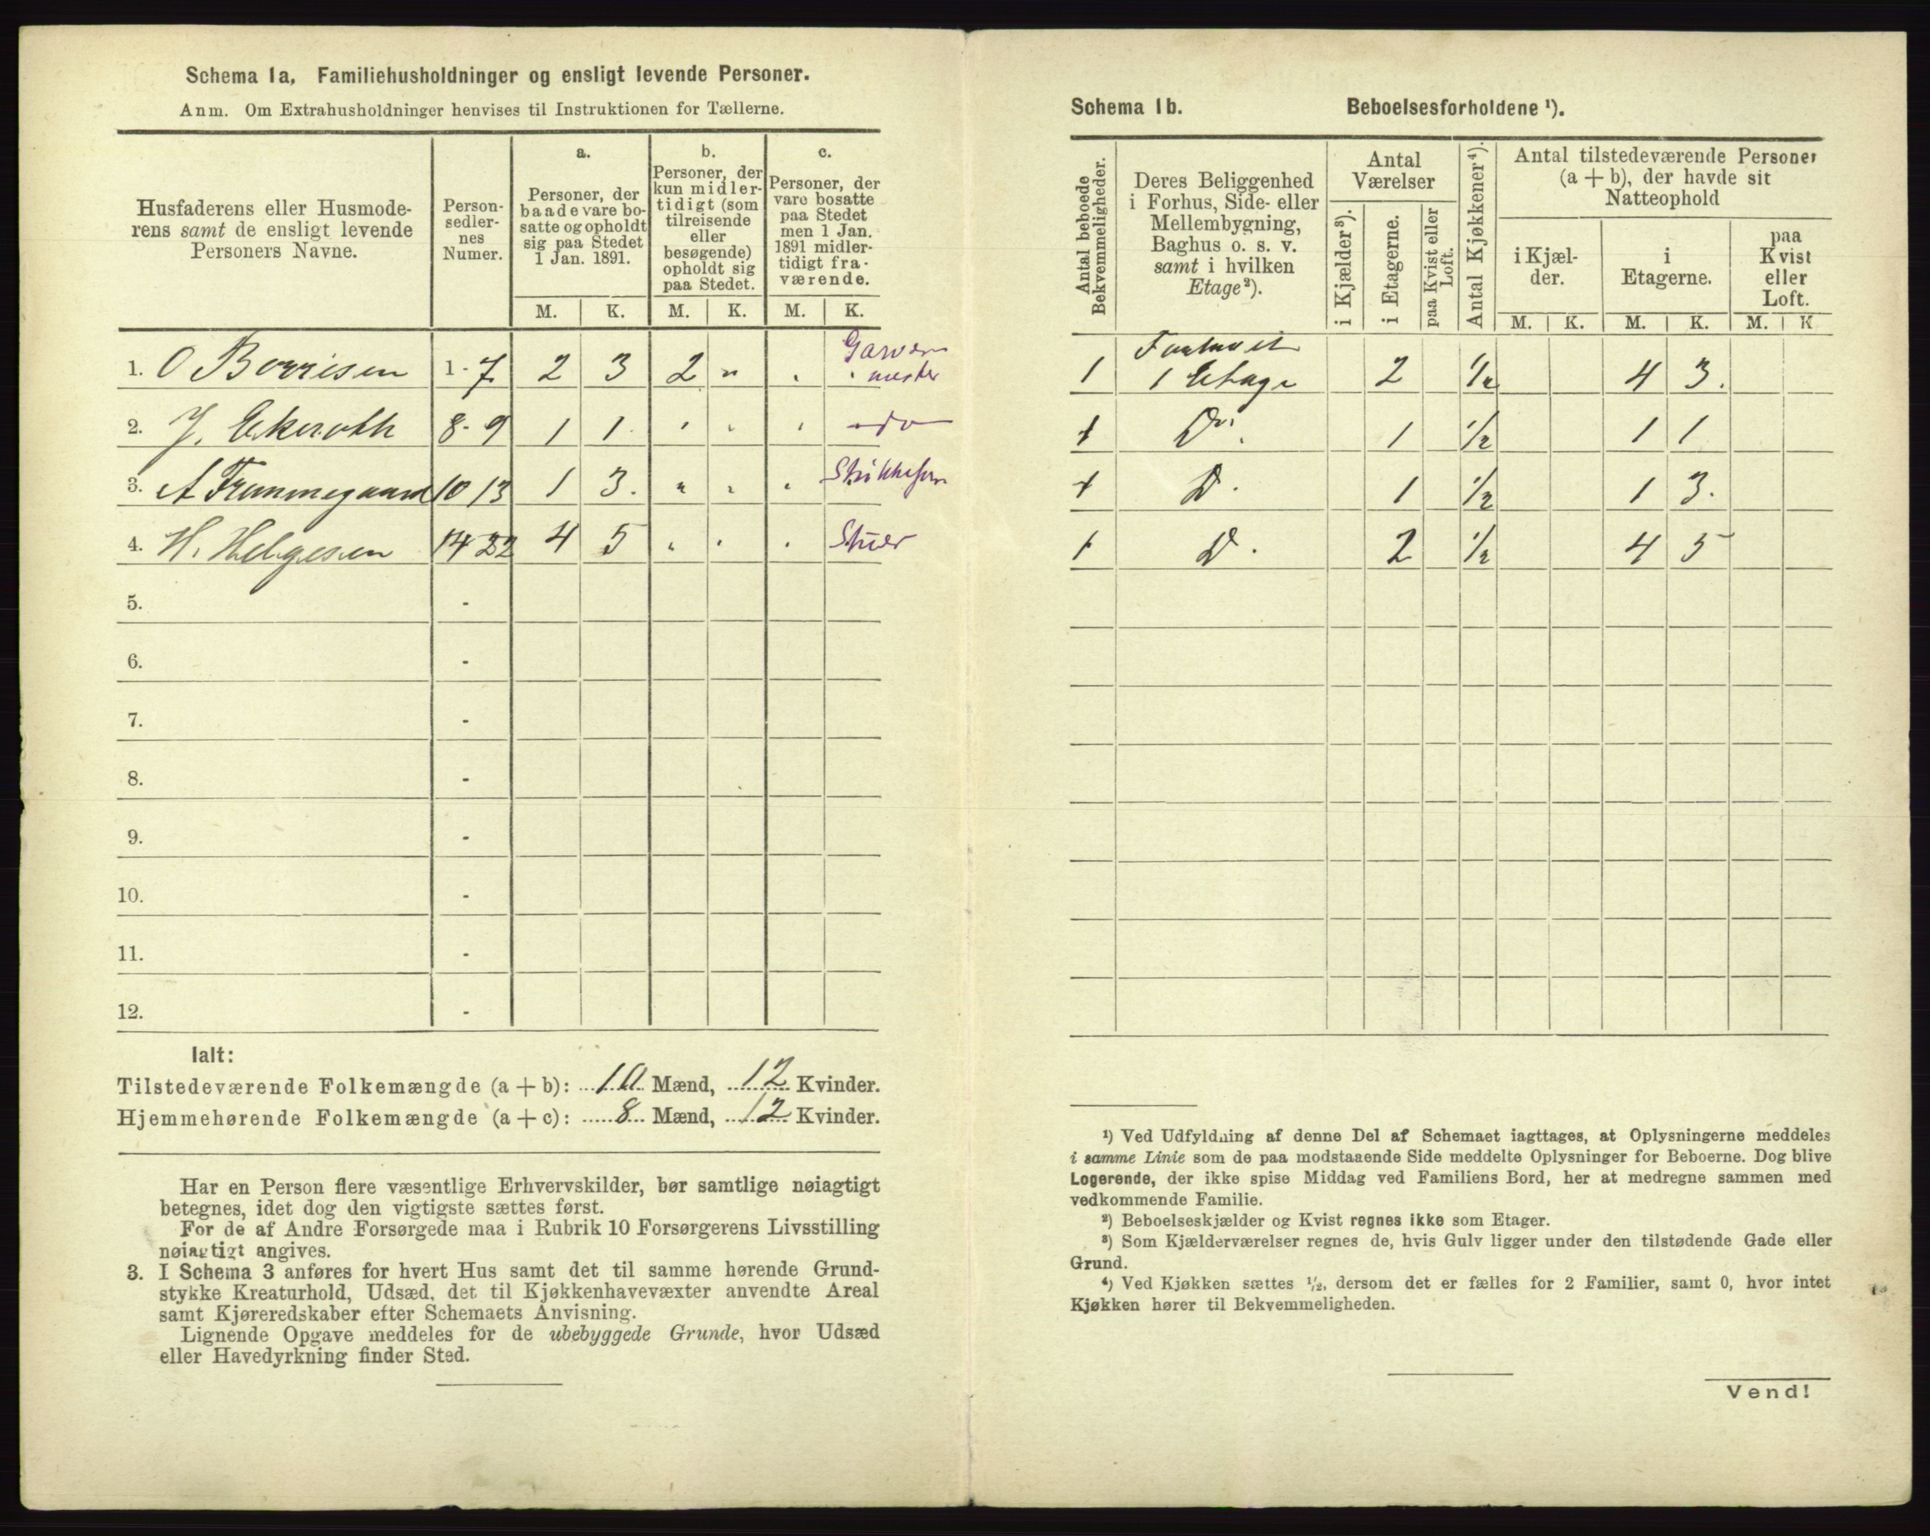 Schema 1a, Familiehusholdninger og ensligt levende Personer.
Anm. Om Extrahusholdninger henvises til Instruktionen for Tællerne.
Husfaderens eller Husmoderens samt de ensligt levende Personers Navne.
Personsedlernes Numer.
a.
Personer, der baade vare bosatte og opholdt sig paa Stedet 1 Jan. 1891.
b.
Personer, der kun midlertidigt (som tilreisende eller besøgende) opholdt sig paa Stedet.
c.
Personer, der vare bosatte paa Stedet men 1 Jan. 1891 midlertidigt fraværende.
M. K. M. K. M. K.
1. O Borrisen 1-7 2 3 2 „ . . Garvermester
2. J. Ekeroth 8-9 1 1 . . . do
3. A Frammegaard 10 13 1 3. „ . .
4. H. Helgesen 14-22 4 5 . . . Stuer
5. -
6. -
7. -
8. -
9. -
10. -
11. -
12. -
Ialt:
Tilstedeværende Folkemængde (a + b): 10 Mænd, 12 Kvinder.
Hjemmehørende Folkemængde (a + c): 8 Mænd, 12 Kvinder.
Har en Person flere væsentlige Erhvervskilder, bør samtlige nøiagtigt
betegnes, idet dog den vigtigste sættes først.
For de af Andre Forsørgede maa i Rubrik 10 Forsørgerens Livsstilling
nøiagtigt angives.
3. I Schema 3 anføres for hvert Hus samt det til samme hørende Grund-
stykke Kreaturhold, Udsæd, det til Kjøkkenhavevæxter anvendte Areal
samt Kjøreredskaber efter Schemaets Anvisning.
Lignende Opgave meddeles for de ubebyggede Grunde, hvor Udsæd
eller Havedyrkning finder Sted.
Schema 1b. Beboelsesforholdene ¹).
Antal beboede Bekvemmeligheder.
Deres Beliggenhed i Forhus, Side- eller Mellembygning, Baghus o. s. v. samt i hvilken Etage²).
Antal Værelser
i Kjælder³).
i Etagerne.
paa Kvist eller Loft.
Antal Kjøkkener⁴).
Antal tilstedeværende Personer (a + b), der havde sit Natteophold
i Kjælder.
i Etagerne.
paa Kvist eller Loft.
M. K. M. K. M. K
1 1 Etage 2 1/2 4 3.
1 Do. 1 1/2 1 1
1 D. 1 1/2 1 3.
1 D. 2 1/2 4 5
¹) Ved Udfyldning af denne Del af Schemaet iagttages, at Oplysningerne meddeles
i samme Linie som de paa modstaaende Side meddelte Oplysninger for Beboerne. Dog blive
Logerende, der ikke spise Middag ved Familiens Bord, her at medregne sammen med
vedkommende Familie.
²) Beboelseskjælder og Kvist regnes ikke som Etager.
³) Som Kjælderværelser regnes de, hvis Gulv ligger under den tilstødende Gade eller
Grund.
⁴) Ved Kjøkken sættes ½, dersom det er fælles for 2 Familier, samt 0, hvor intet
Kjøkken hører til Bekvemmeligheden.
Vend!